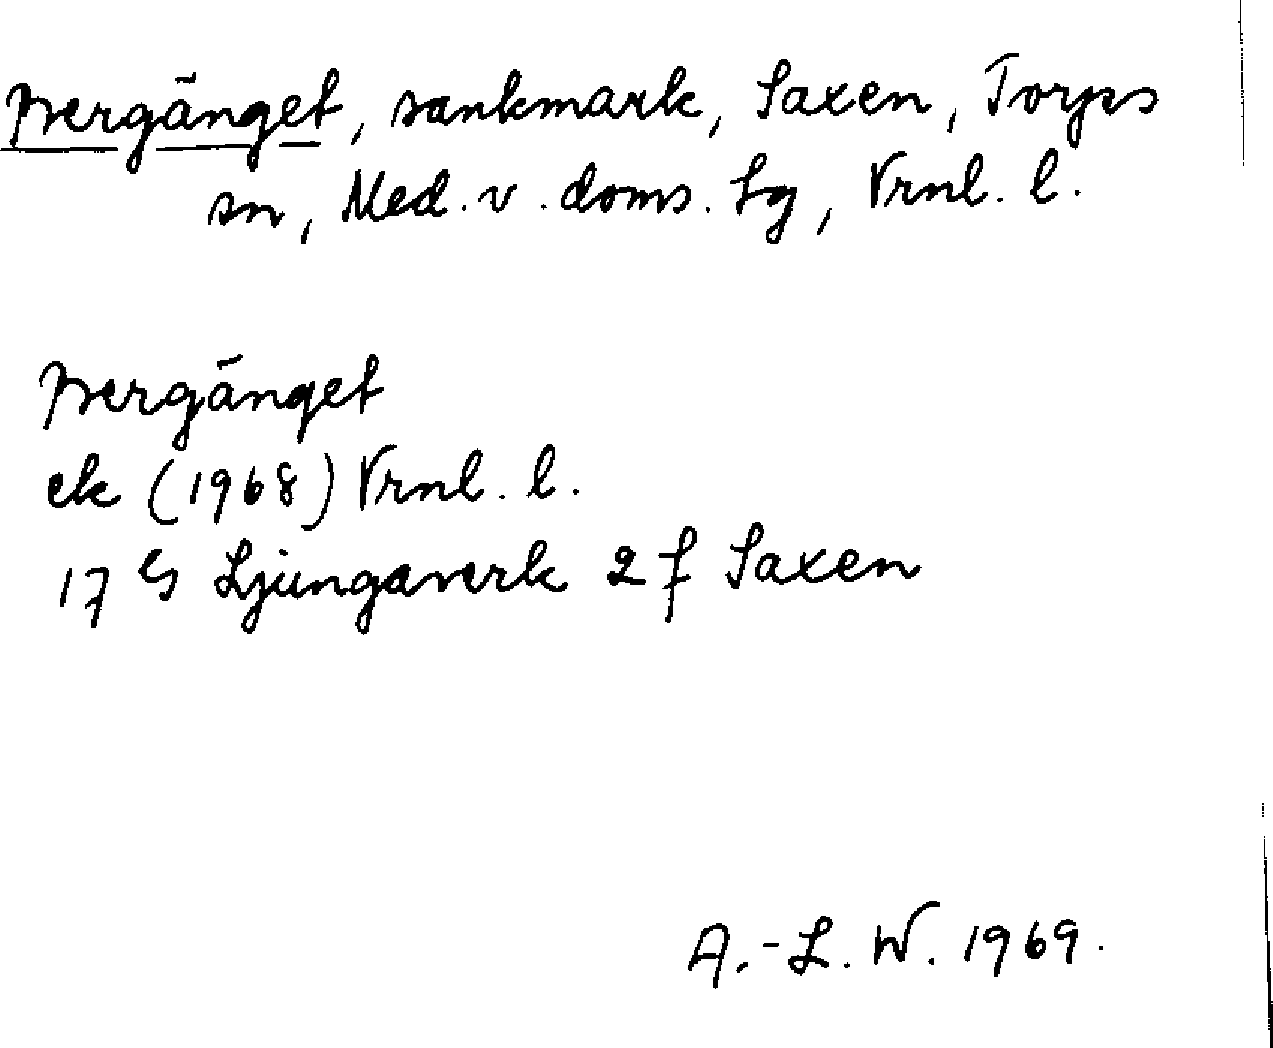 Bergänget, sankmark, Saxen, Torps
sn, Med. v. doms. tg, Vrnl. l.
Bergänget
ek (1968) Vrnl. l.
17 G Ljungaverk 2 f Saxen
A.-L. W. 1969.